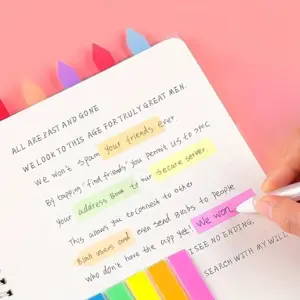 ALL ARE PAST AND GONE
WE LOOK TO THIS AGE FOR TRULY GREAT MEN.
We won't spam your friends ever.
By tapping "find friends" you permit us to sync
Your address Book to our secure server.
This allows you to connect to other
users and even send to People
Who don't have the app yet! We won
I SEE NO ENDING,
SEARCH WITH MY WILL